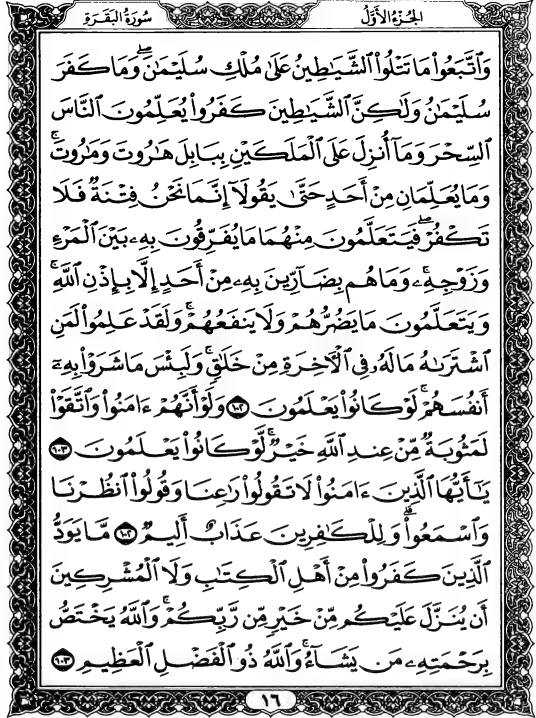 الجزء الأول
سورة البقرة
وَٱتَّبَعُوا۟ مَا تَتْلُوا۟ ٱلشَّيَـٰطِينُ عَلَىٰ مُلْكِ سُلَيْمَـٰنَ ۖ وَمَا كَفَرَ
سُلَيْمَـٰنُ وَلَـٰكِنَّ ٱلشَّيَـٰطِينَ كَفَرُوا۟ يُعَلِّمُونَ ٱلنَّاسَ
ٱلسِّحْرَ وَمَآ أُنزِلَ عَلَى ٱلْمَلَكَيْنِ بِبَابِلَ هَـٰرُوتَ وَمَـٰرُوتَ ۚ
وَمَا يُعَلِّمَانِ مِنْ أَحَدٍ حَتَّىٰ يَقُولَآ إِنَّمَا نَحْنُ فِتْنَةٌ فَلَا
تَكْفُرْ ۖ فَيَتَعَلَّمُونَ مِنْهُمَا مَا يُفَرِّقُونَ بِهِۦ بَيْنَ ٱلْمَرْءِ
وَزَوْجِهِۦ ۚ وَمَا هُم بِضَآرِّينَ بِهِۦ مِنْ أَحَدٍ إِلَّا بِإِذْنِ ٱللَّهِ ۚ
وَيَتَعَلَّمُونَ مَا يَضُرُّهُمْ وَلَا يَنفَعُهُمْ ۚ وَلَقَدْ عَلِمُوا۟ لَمَنِ
ٱشْتَرَىٰهُ مَا لَهُۥ فِى ٱلْـَٔاخِرَةِ مِنْ خَلَـٰقٍ ۚ وَلَبِئْسَ مَا شَرَوْا۟ بِهِۦٓ
أَنفُسَهُمْ ۚ لَوْ كَانُوا۟ يَعْلَمُونَ ١٠٢ وَلَوْ أَنَّهُمْ ءَامَنُوا۟ وَٱتَّقَوْا۟
لَمَثُوبَةٌ مِّنْ عِندِ ٱللَّهِ خَيْرٌ ۖ لَّوْ كَانُوا۟ يَعْلَمُونَ ١٠٣
يَـٰٓأَيُّهَا ٱلَّذِينَ ءَامَنُوا۟ لَا تَقُولُوا۟ رَٰعِنَا وَقُولُوا۟ ٱنظُرْنَا
وَٱسْمَعُوا۟ ۗ وَلِلْكَـٰفِرِينَ عَذَابٌ أَلِيمٌ ١٠٤ مَّا يَوَدُّ
ٱلَّذِينَ كَفَرُوا۟ مِنْ أَهْلِ ٱلْكِتَـٰبِ وَلَا ٱلْمُشْرِكِينَ
أَن يُنَزَّلَ عَلَيْكُم مِّنْ خَيْرٍ مِّن رَّبِّكُمْ ۗ وَٱللَّهُ يَخْتَصُّ
بِرَحْمَتِهِۦ مَن يَشَآءُ ۚ وَٱللَّهُ ذُو ٱلْفَضْلِ ٱلْعَظِيمِ ١٠٣
١٦